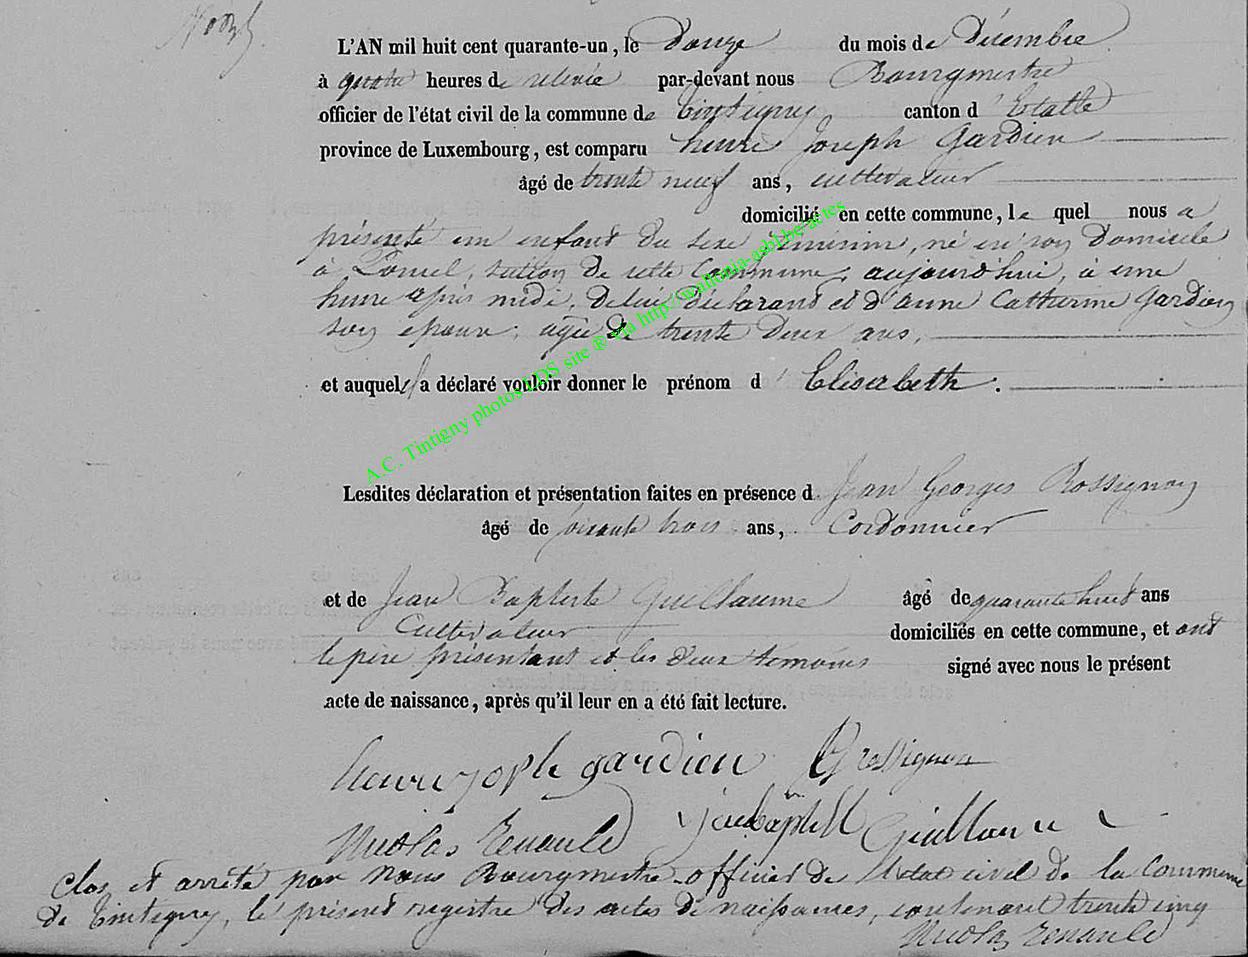 L'AN mil huit cent quarante-un, le Douze du mois de Décembre
à quatre heures de relevée par-devant nous Bourgmestre
officier de l'état civil de la commune de Tintigny canton d'Etalle
province de Luxembourg, est comparu henri Joseph Gardien
âgé de trente neuf ans, cultivateur
domicilié en cette commune, le quel nous a
présenté un enfant du sexe féminin, né en son Domicile
à section de cette Commune, aujourd'hui, à une
heure après midi, de lui déclarant et d'anne Catherine Gardien
son epouse, agée de trente Deux ans,
et auquel il a déclaré vouloir donner le prénom d'Elisabeth.
Lesdites déclaration et présentation faites en présence de Jean Georges Rossignon
âgé de soixante trois ans, Cordonnier
et de Jean Baptiste Guillaume âgé de quarante huit ans
Cultivateur domiciliés en cette commune, et ont
le père présentant et les deux témoins signé avec nous le présent
acte de naissance, après qu'il leur en a été fait lecture.
henri joseph gardien Rossignon
Nicolas Renauld Guillaume
Clos et arrêté par Nous Bourgmestre officier de l'état civil de la Commune
de Tintigny, le présent registre des actes de naissances, contenant trente cinq
Nicolas Renauld
A.C. Tintigny photos EDS site ® via http://wallonia-asbl.be-actes